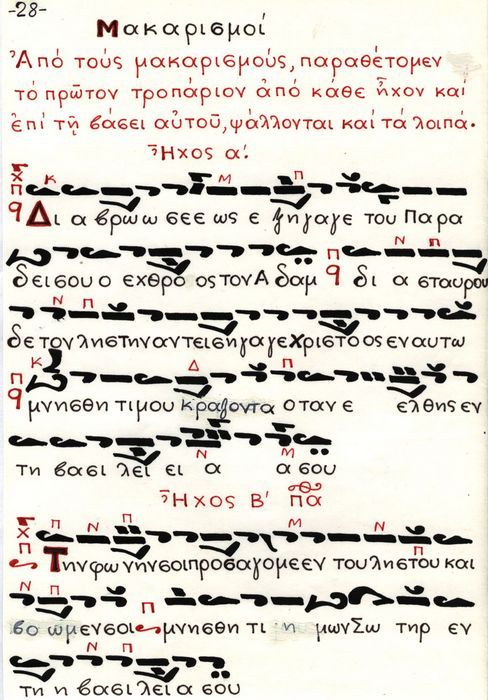 -28-
Μακαρισμοί
Ἀπό τούς μακαρισμούς, παραθέτομεν
τό πρῶτον τροπάριον ἀπό κάθε ἦχον καί
ἐπί τῇ βάσει αὐτοῦ, ψάλλονται καί τά λοιπά.
Ἦχος α΄.
Κ Μ Π
Δι α βρω ω σε ε ως ε ξηγαγε του Παρα
Ν Π
δεισου ο εχθρο ος τον Αδαμ δι α σταυρου
Ν Π
δε τον ληστην αντεισηγαγε Χριστο ος εν αυτω
Κ Δ Π
μνησθη τι μου κραζοντα οταν ε ελθης εν
Ν Μ
τη βασι λει ει α α σου
Ἦχος Β΄ πα
Π Ν Π Μ Ν Π
Την φω νην σοι προσαγομε εν του ληστου και
Ν Π Π
βο ωμεν σοι μνησθη τι η μων Σω τηρ εν
Ν Π
τη η βασι λει α σου